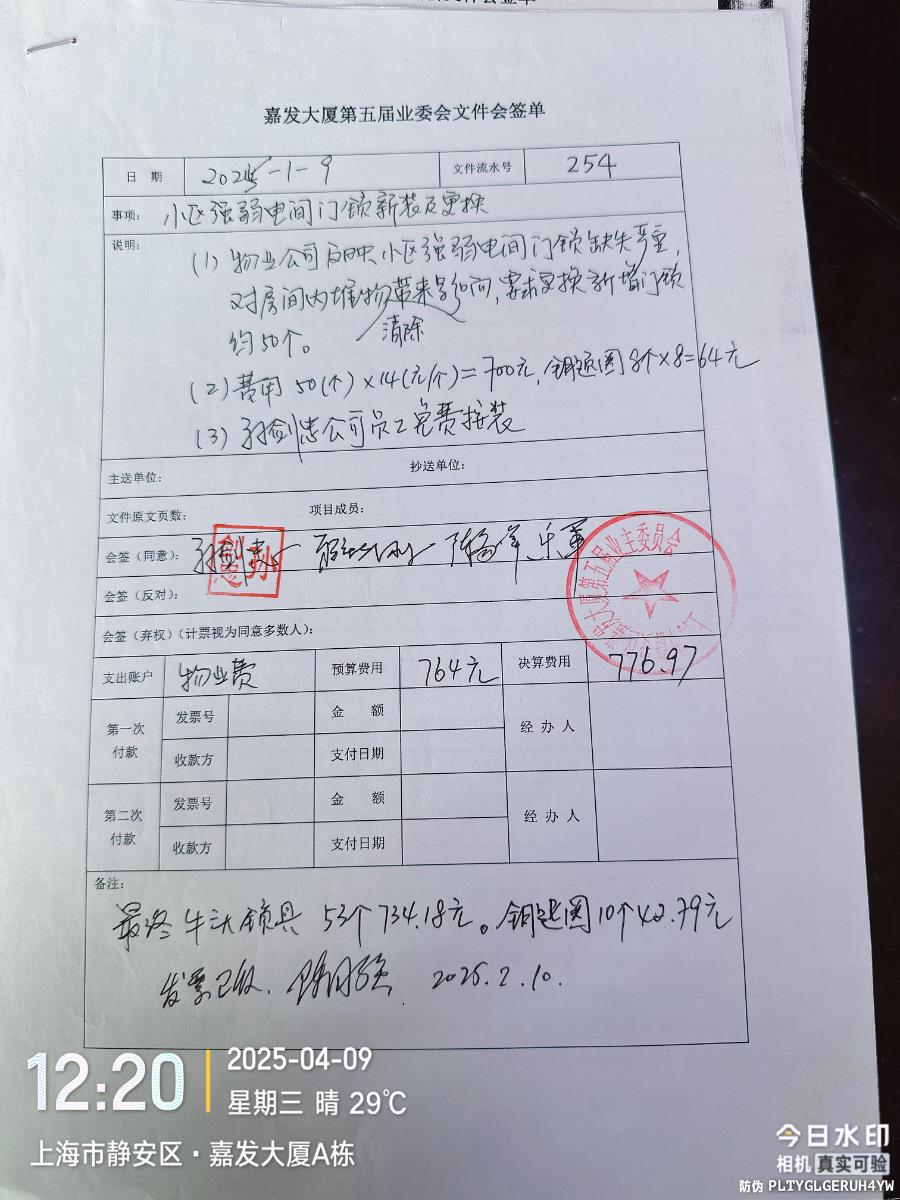 嘉发大厦第五届业委会文件会签单
日 期 2025-1-9 文件流水号 254
事项: 小区强弱电间门锁新装及更换
说明:
(1) 物业公司反映小区强弱电间门锁缺失严重,
对房间内堆物带来影响,要求更换新增门锁
清除
约50个。
(2) 费用 50(个)×14(元/个)=700元,钥匙圈8个×8=64元
(3) 孙剑忠公司员工免费换装
主送单位: 抄送单位:
文件原文页数: 项目成员:
会签(同意): 孙剑忠
会签(反对):
会签(弃权)(计票视为同意多数人):
支出账户 物业费 预算费用 764元 决算费用 776.97
第一次付款 发票号 金 额 经 办 人
收款方 支付日期
第二次付款 发票号 金 额 经 办 人
收款方 支付日期
备注:
最终牛头锁具 53个734.18元。钥匙圈10个42.79元
发票已收. 2025.2.10.
嘉发大厦第五届业主委员会
12:20
2025-04-09
星期三 晴 29℃
上海市静安区·嘉发大厦A栋
今日水印
相机 真实可验
防伪 PLTYGLGERUH4YW